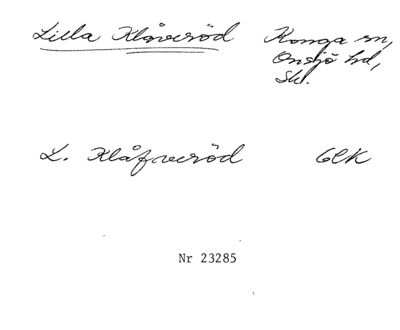 Lilla Klåveröd Konga sn,
Onsjö hd,
Sk.
L. Klåfveröd GEK
Nr 23285